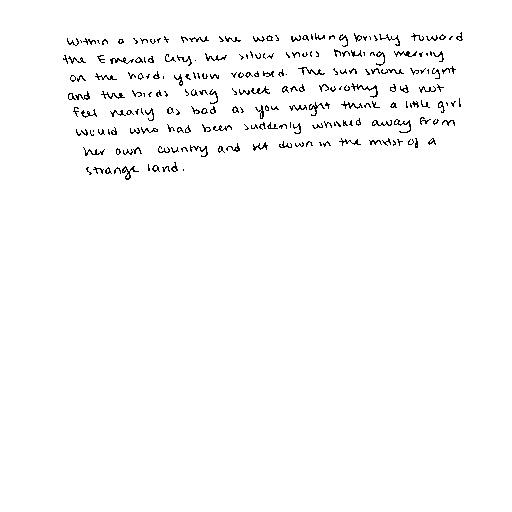 within a short time she was walking briskly toward
the Emerald City, her silver shoes tinkling merrily
on the hard, yellow roadbed. The sun shone bright
and the birds sang sweet and Dorothy did not
feel nearly as bad as you might think a little girl
would who had been suddenly whisked away from
her own country and set down in the midst of a
strange land.